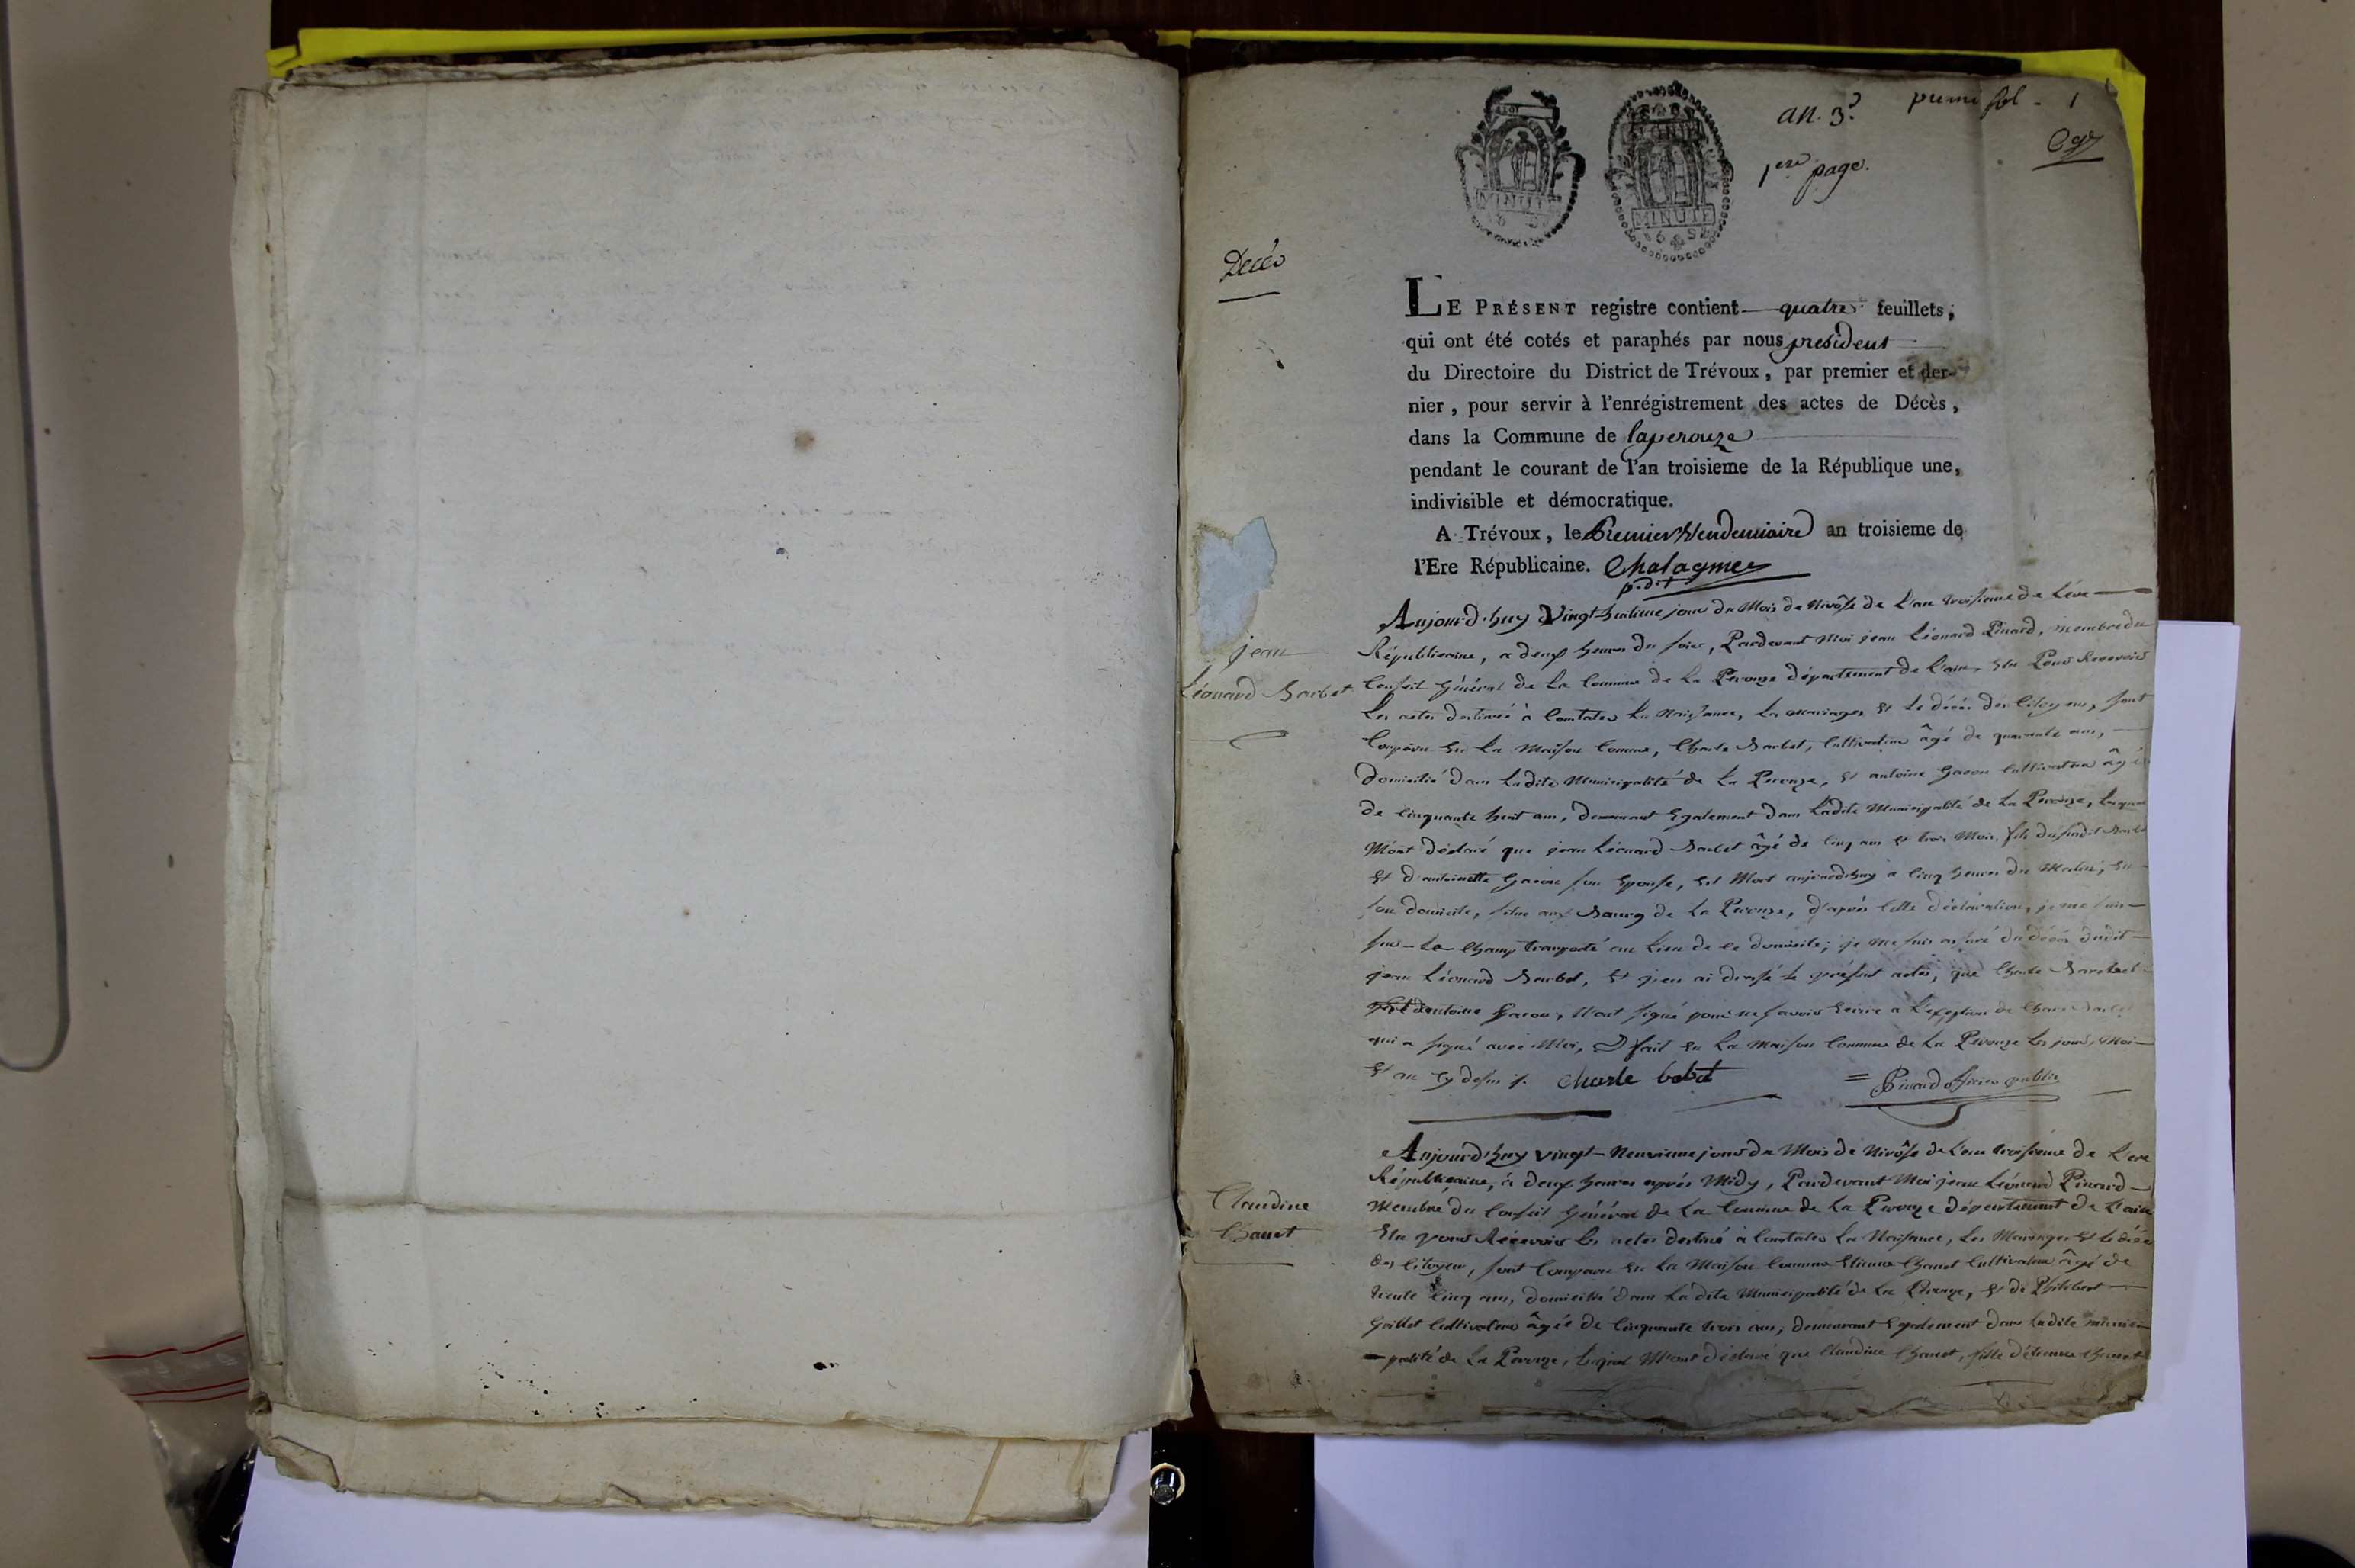 an. 3e
premi fol - 1
1ere page.
MINUTE
MINUTE
Décès
LE PRÉSENT registre contient quatre feuillets,
qui ont été cotés et paraphés par nous président
du Directoire du District de Trévoux, par premier et der-
nier, pour servir à l'enrégistrement des actes de Décès,
dans la Commune de laperouze
pendant le courant de l'an troisieme de la République une,
indivisible et démocratique.
A Trévoux, le Premier Vendemiaire an troisieme de
l'Ere Républicaine. Chalaymer
p.dt
jean
Léonard Barbet
Aujourd'huy Vingt huitieme jour du Mois de Nivôse de L'an troisieme de L'ére
Républicaine, a deux heures du soir, Pardevant Moi jean Léonard Pinard, membre du
Conseil Général de La Commune de La Perouze département de L'ain, Elu Pour Recevoir
Les actes destinés à Constater La Naissance, Les mariages Et Le décés des Citoyens, sont
Comparu En La Maison Commune, Charle Barbet, Cultivateur âgé de quarante ans,
domicilié dans Ladite Municipalité de La Perouze, Et antoine Gacon Cultivateur âgé
de Cinquante huit ans, demeurant Egalement dans Ladite Municipalité de La Perouze, Lesquels
M'ont déclaré que jean Léonard Barbet âgé de Cinq ans Et trois Mois, fils du susdit Barbet
Et d'antoinette Gacon son Epouse, Est Mort aujourdhuy a Cinq heures du Matin, En
son domicile, situe au Bourg de La Perouze, d'après Cette déclaration, je me suis
sur-Le Champ transporté au Lieu de ce domicile; je me suis assuré du décés dudit
jean Léonard Barbet, Et j'en ai dressé Le présent acte, que Charle Barbet
antoine Gacon, N'ont signé pour ne savoir Ecrire a L'exception de Charle Barbet
qui a signé avec Moi, fait En La Maison Commune de La Perouze Les jour, Moi
Et an Cy dessus. Charle babet = Pinard officier public
Claudine
Chanet
Aujourd'huy vingt-Neuvieme jour du Mois de Nivôse de L'an troisieme de L'ere
Républicaine, à deux heures après Midy, Pardevant Moi jean Léonard Pinard
Membre du Conseil Général de La Commune de La Perouze département de L'ain
Elu pour Recevoir Les actes destiné à Constater La Naissance, Les Mariages Et Le décés
des Citoyens, sont Comparu En La Maison Commune Etienne Chanet Cultivateur âgé de
trente Cinq ans, domicilié dans Ladite Municipalité de La Perouze, Et de Philibert
Guillet Cultivateur âgée de Cinquante trois ans, demeurant Egalement dans Ladite munici
-palité de La Perouze, Lesquel M'ont déclaré que Claudine Chanet, fille d'étienne Chanet